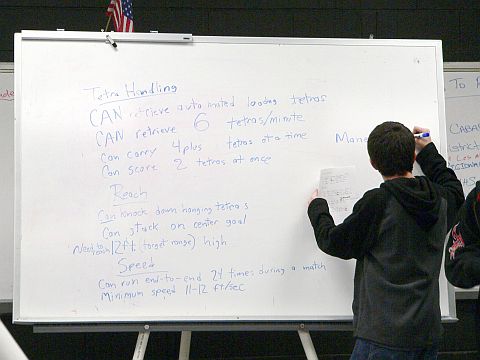 Tetra Handling
CAN retrieve automated loading tetras
CAN retrieve 6 tetras/minute
Can carry 4 plus tetras at a time
Can score 2 tetras at once
Reach
Can knock down hanging tetras
Can stack on center goal
Need to reach 12ft (target range) high
Speed
Can run end-to-end 24 times during a match
Minimum speed 11-12 ft/sec
Man
To